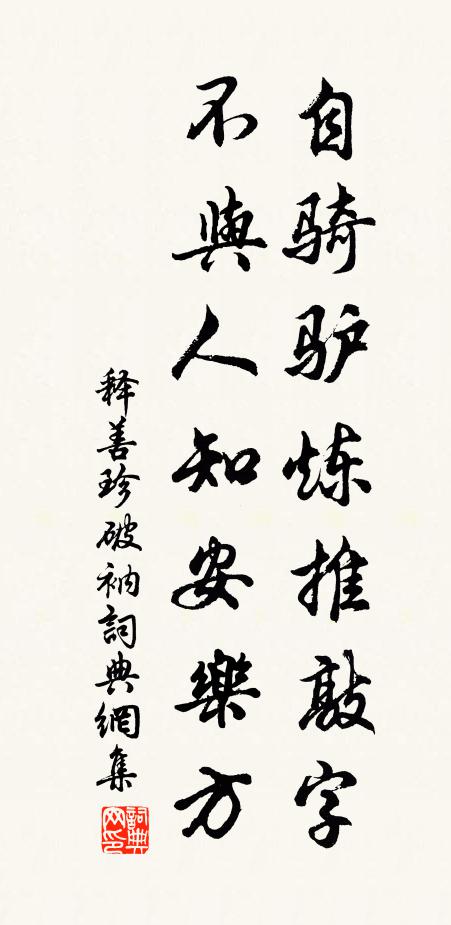 自骑驴炼推敲字
不與人知安樂方
释善珍破衲詞典網集
詞典网印